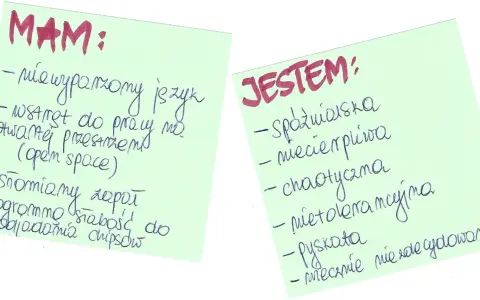 MAM:
- niewyparzony język
- wstręt do pracy na
otwartej przestrzeni
(open space)
słomiany zapał
ogromną słabość do
podjadania chipsów
JESTEM:
- spóźnialska
- niecierpliwa
- chaotyczna
- nietolerancyjna
- pyskata
- wiecznie niezdecydowana